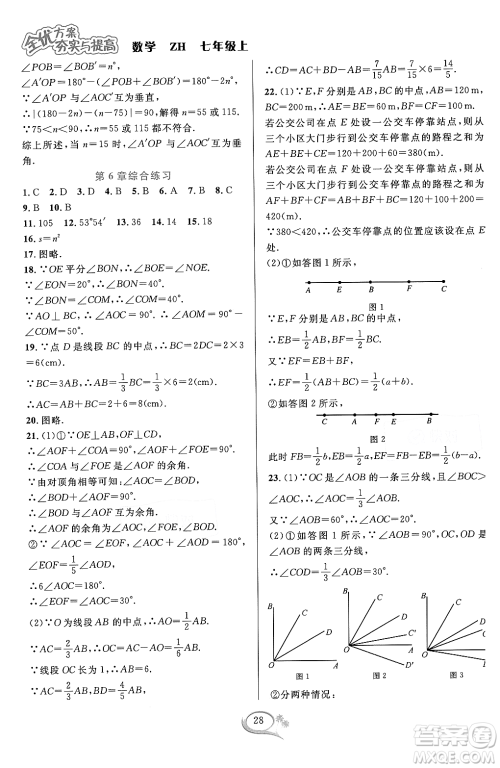 全优方案
夯实与提高
数学 ZH 七年级上
∠POB=∠BOB′=45°.
∠A′OP=180°-(∠POB+∠BOB′)=90°.
∴∠A′OP与∠AOC′互为垂直,
∴|(180-2n)-(n-75)|=90.
∵75<n<90,∴n=115,不符合.
综上所述,当n=15时,∠A′OP与∠AOC′互为垂直角.
第6章综合练习
1. C 2. D 3. D 4. B 5. B 6. A 7. D 8. C
9. B 10. B
11. 105 12. 53°54′ 13. 75 14. 2 15. 18
16. s=n²
17. 图略.
18. ∵OE平分∠BOD,∴∠BOD=2∠BOE.
∵∠BOE=20°,∴∠BOD=40°.
∴∠AOC=∠BOD=40°.
∵AO⊥BC,∴∠AOC=90°.
∴∠COD=90°-40°=50°.
19. ∵点D是线段BC的中点,∴BC=2BD=2×3
=6(cm).
∵BC=3AB,∴AB=1/3BC=1/3×6=2(cm).
∴AC=AB+BC=2+6=8(cm).
20. 图略.
21. (1)①∵OE⊥AB,OF⊥CD,
∴∠AOF+∠AOC=90°,∠AOF+∠EOF=90°.
∴∠COA与∠EOF是∠AOF的余角.
∵由对顶角相等可得∠COA=∠BOD,
∴∠BOD+∠AOF=90°.
∴∠BOD与∠AOF互为余角.
∴∠AOF的余角为∠AOC,∠EOF,∠BOD.
②∵∠AOC=∠EOF,∠AOC+∠AOD=180°,
∠EOF=1/5∠AOD,
∴6∠AOC=180°.
∴∠EOF=∠AOC=30°.
(2)∵O为线段AB的中点,∴AO=1/2AB.
∵AC=2/3AB,∴OC=AC-AO=1/6AB.
∵线段OC长为1,∴AB=6.
∵AC=2/3AB,BD=4/5AB,∴AD=1/5AB.
∴CD=AC-AD=2/3AB-1/5AB=7/15AB=7/15×6=14/5.
22. (1)∵E,F分别是AB,BC的中点,AB=120 m,
BC=200 m,∴AE=BE=60 m,BF=CF=100 m.
若公交公司将公交车停靠点设在点E处,则从
三个小区大门步行到公交车停靠点的路程之和为
AE+BE+CE=120+60+200=380(m).
若公交公司将公交车停靠点设在点F处,则从
三个小区大门步行到公交车停靠点的路程之和为
AF+BF+CF=120+100+200=420(m).
∵380<420,∴公交车停靠点的位置应该设在点E处.
(2)①如答图1所示,
A E B F C
图1
∵E,F分别是AB,BC的中点,
∴EB=1/2AB,BF=1/2BC.
又∵EF=EB+BF,
∴EF=1/2AB+1/2BC=1/2(a+b).
②如答图2所示,
图2
此时FB=1/2b,EB=1/2a,EF=FB-EB=1/2(b-a).
23. (1)∵OC是∠AOB的一条三分线,且∠BOC>
∠AOC,∴∠AOC=1/3∠AOB=20°.
(2)①如答图1,∵∠AOB=90°,OC,OD是
∠AOB的两条三分线,
∴∠COD=1/3∠AOB=30°.
B C D O A
图1
B C D C′ D′ O A
图2
B C O
图3
②分两种情况:
28